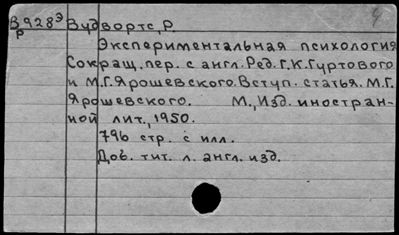 В928Э Вудвортс, Р.
Р
Экспериментальная психология
Сокращ. пер. с англ. Ред. Г.К. Гуртового
и М.Г. Ярошевского. Вступ. статья. М.Г.
Ярошевского. М., Изд. иностран-
ной лит., 1950.
796 стр. с илл.
Доб. тит. л. англ. изд.